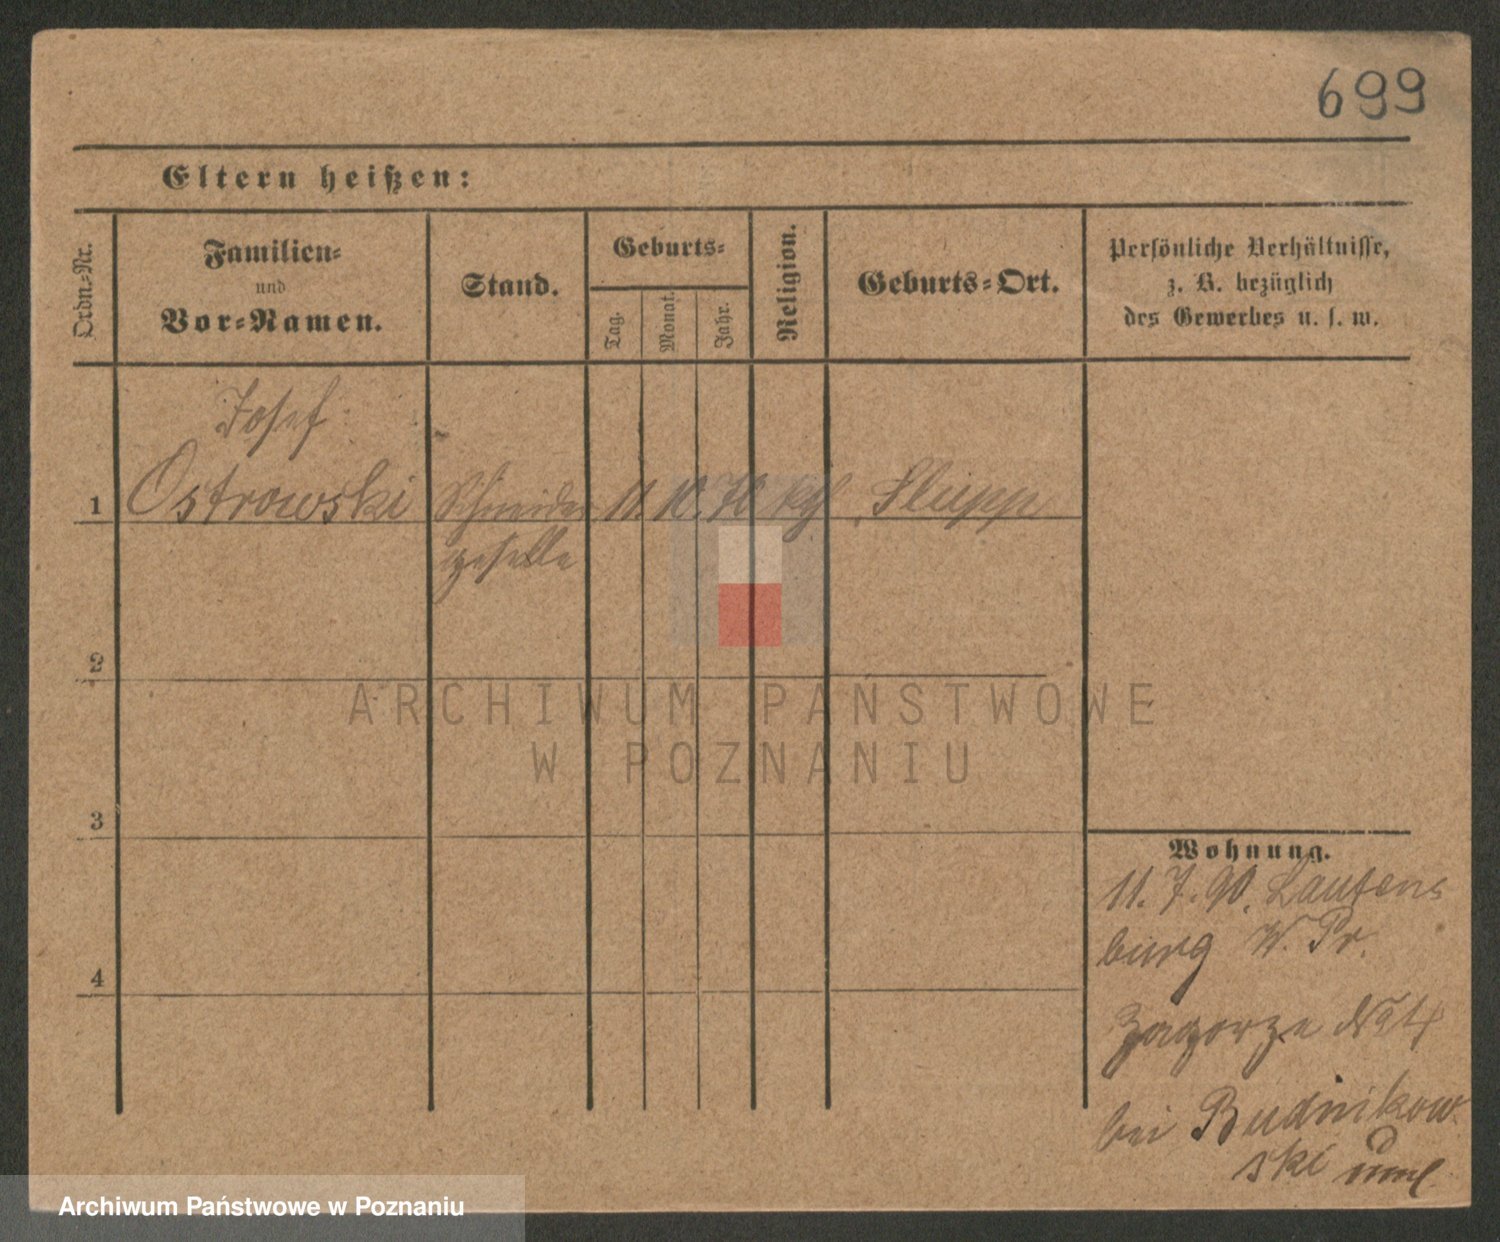 699
Eltern heißen:
Ordn.-Nr.
Familien-
und
Vor-Namen.
Stand.
Geburts-
Tag.
Monat.
Jahr.
Religion.
Geburts-Ort.
Persönliche Verhältnisse,
z. B. bezüglich
des Gewerbes u. s. w.
Josef
1 Ostrowski Schneider 11. 10. 70 kth Slupp
geselle
2
3
4
Wohnung.
11. 7. 90. Lautens
burg W. Pr.
Zagorze No 4
bei Budnikow
ski
ARCHIWUM PAŃSTWOWE
W POZNANIU
Archiwum Państwowe w Poznaniu